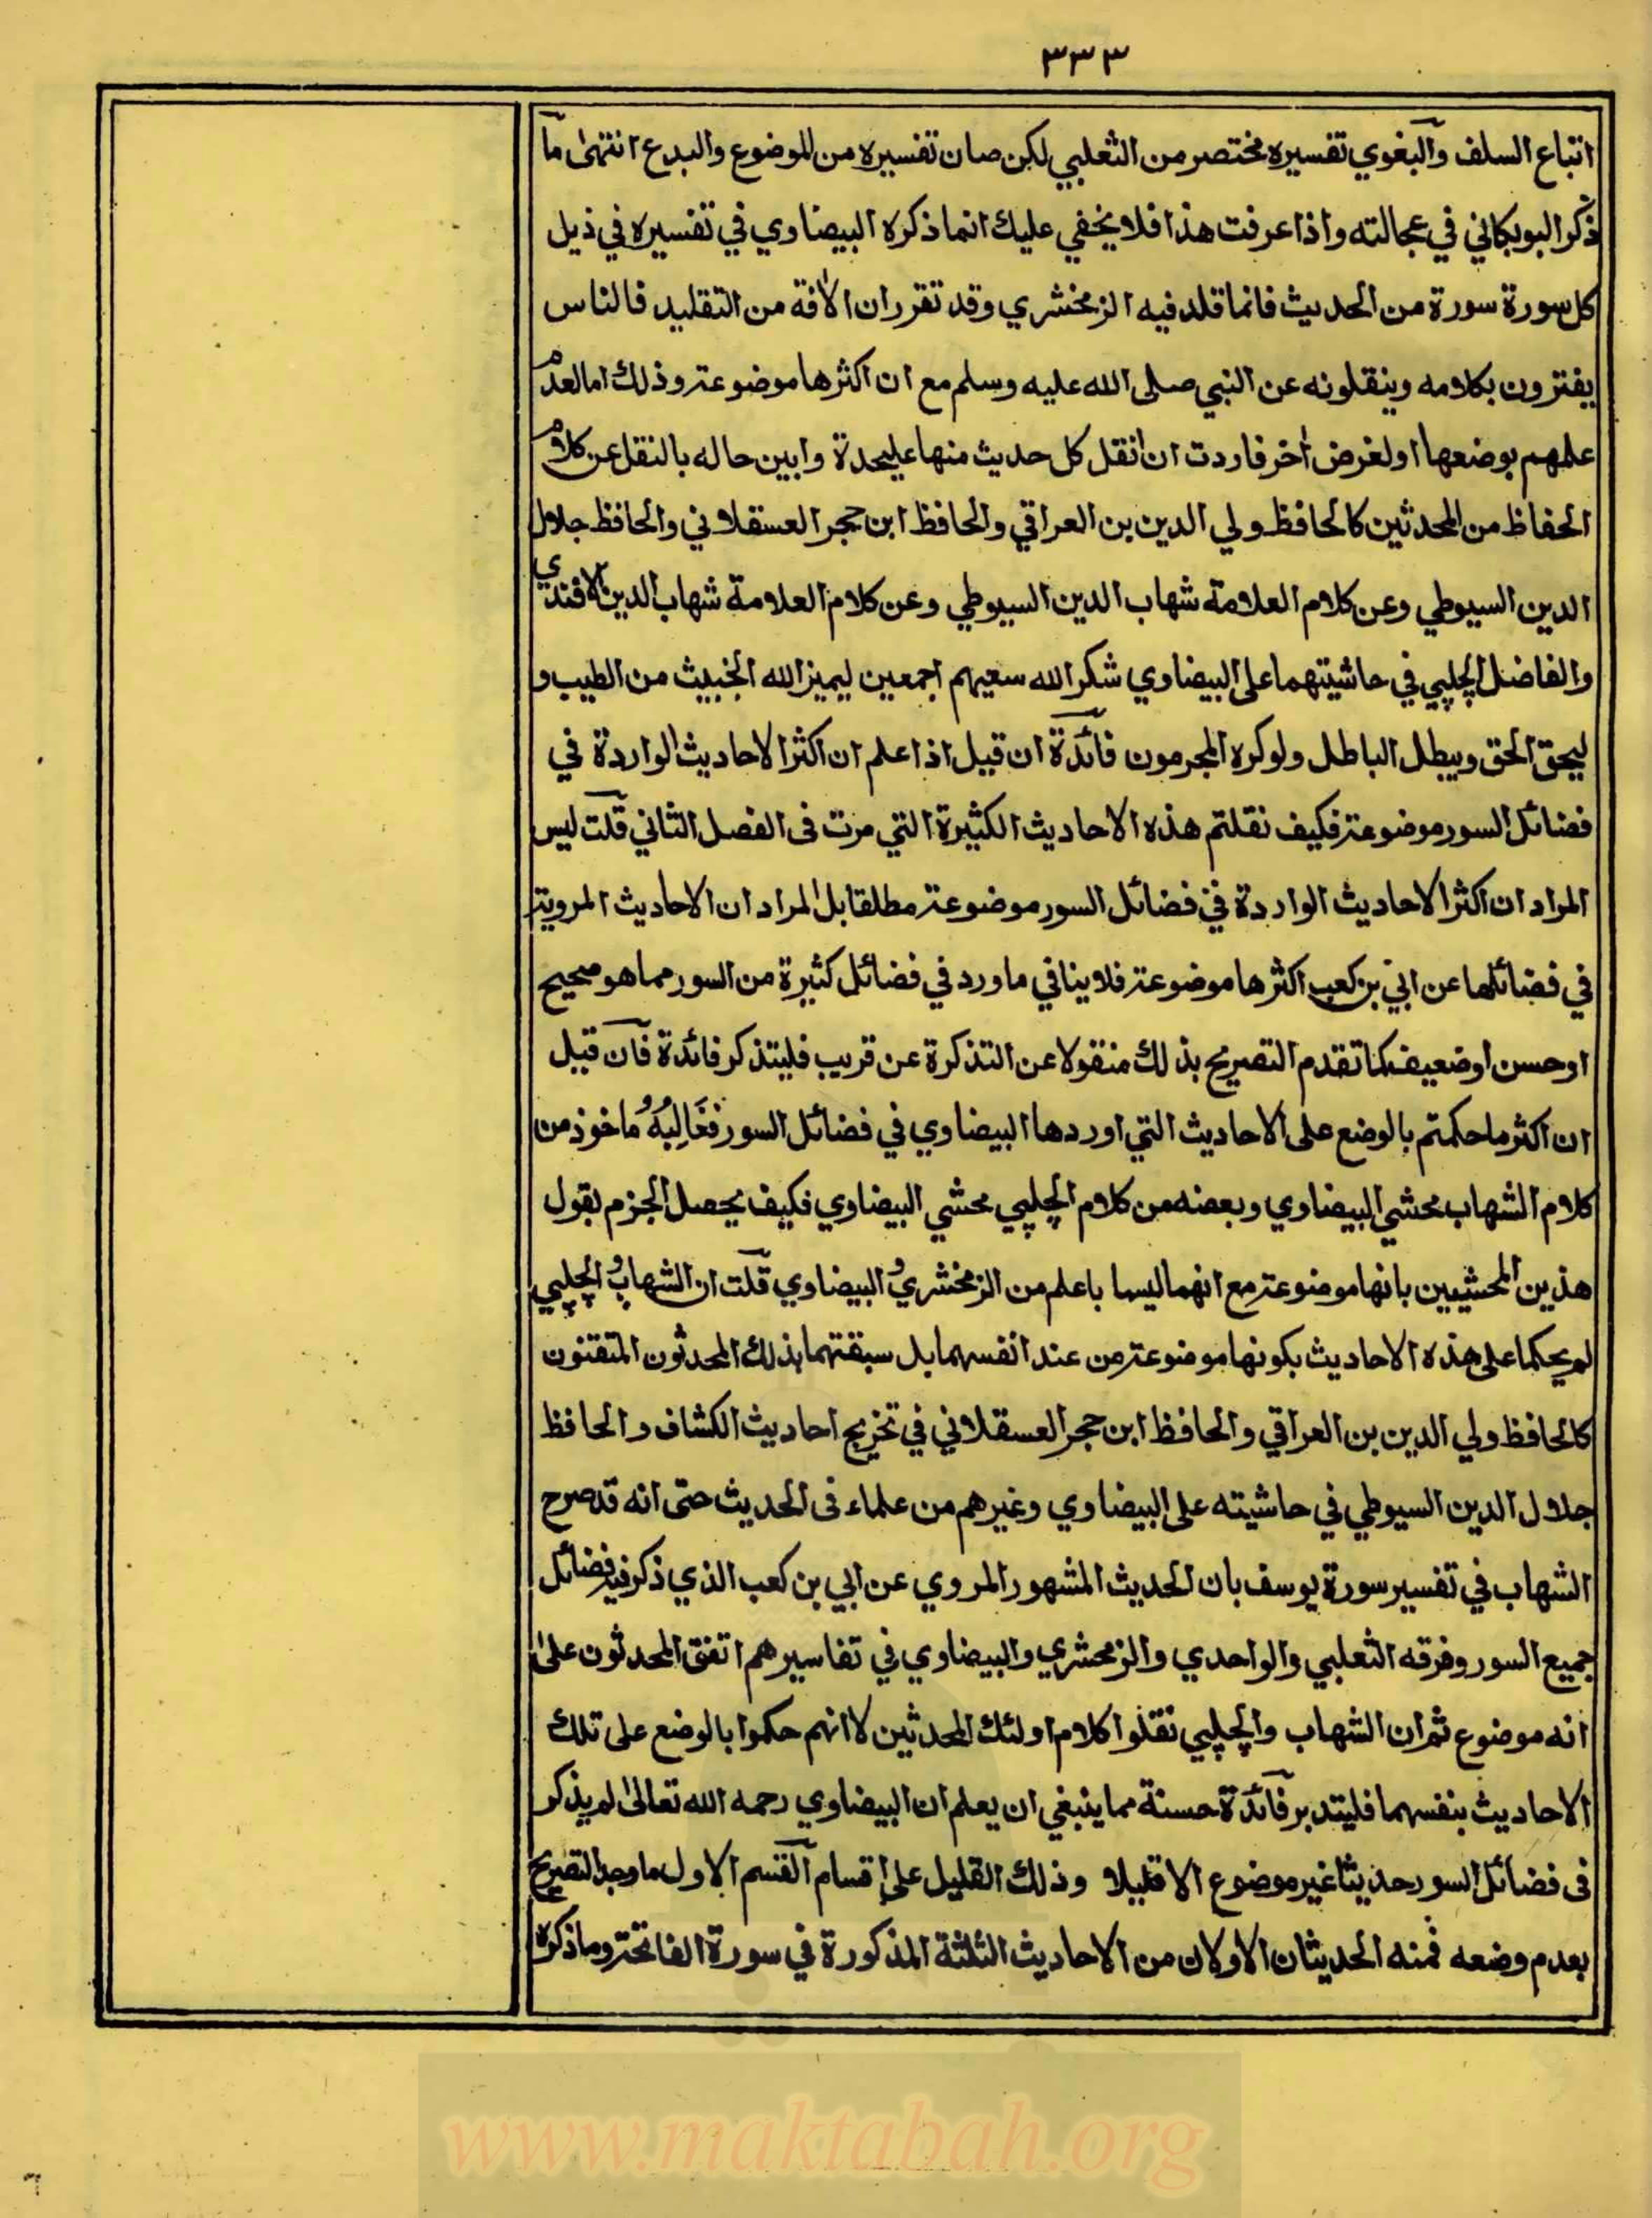 ٣٣٣
اتباع السلف والبغوي تفسيره مختصر من الثعلبي لكن صان تفسيره من الموضوع والبدع انتهى ما
ذكر البوبكاني في عجالته واذا عرفت هذا فلا يخفي عليك انما ذكره البيضاوي في تفسيره في ذيل
كل سورة سورة من الحديث فانما قلد فيه الزمخشري وقد تقرر ان الافة من التقليد فالناس
يفترون بكلامه وينقلونه عن النبي صلى الله عليه وسلم مع ان اكثرها موضوعة وذلك اما لعدم
علمهم بوضعها او لغرض اخر فاردت ان انقل كل حديث منها عليحدة وابين حاله بالنقل عن كلام
الحفاظ من المحدثين كالحافظ ولي الدين بن العراقي والحافظ ابن حجر العسقلاني والحافظ جلال
الدين السيوطي وعن كلام العلامة شهاب الدين السيوطي وعن كلام العلامة شهاب الدين الافندي
والفاضل الچلپي في حاشيتهما على البيضاوي شكر الله سعيهم اجمعين ليميز الله الخبيث من الطيب و
ليحق الحق ويبطل الباطل ولو كره المجرمون فائدة ان قيل اذا علم ان اكثر الاحاديث الواردة في
فضائل السور موضوعة فكيف نقلتم هذه الاحاديث الكثيرة التي مرت فى الفصل الثاني قلت ليس
المراد ان اكثر الاحاديث الواردة في فضائل السور موضوعة مطلقا بل المراد ان الاحاديث المروية
في فضائلها عن ابي بن كعب اكثرها موضوعة فلا ينافي ما ورد في فضائل كثيرة من السور مما هو صحيح
او حسن او ضعيف كما تقدم التصريح بذلك منقولا عن التذكرة عن قريب فليتذكر فائدة فان قيل
ان اكثر ما حكمتم بالوضع على الاحاديث التي اوردها البيضاوي في فضائل السور فَغَالِبُهُ ماخوذ من
كلام الشهاب محشي البيضاوي وبعضه من كلام الچلپي محشي البيضاوي فكيف يحصل الجزم بقول
هذين المحشيين بانها موضوعة مع انهما ليسا باعلم من الزمخشري و البيضاوي قلت ان الشهاب و الچلپي
لم يحكما على هذه الاحاديث بكونها موضوعة من عند انفسهما بل سبقتهما بذلك المحدثون المتقنون
كالحافظ ولي الدين بن العراقي والحافظ ابن حجر العسقلاني في تخريج احاديث الكشاف والحافظ
جلال الدين السيوطي في حاشيته على البيضاوي وغيرهم من علماء فى الحديث حتى انه قد صرح
الشهاب في تفسير سورة يوسف بان الحديث المشهور المروي عن ابي بن كعب الذي ذكر فيه فضائل
جميع السور وفرقه الثعلبي والواحدي والزمحشري والبيضاوي في تفاسيرهم اتفق المحدثون على
انه موضوع ثم ان الشهاب والچلپي نقلوا كلام اولئك المحدثين لا انهم حكموا بالوضع على تلك
الاحاديث بنفسهما فليتدبر فائدة حسنة مما ينبغي ان يعلم ان البيضاوي رحمه الله تعالى لم يذكر
فى فضائل السور حديثا غير موضوع الا قليلا وذلك القليل على اقسام القسم الاول ما وجد التصريح
بعدم وضعه فمنه الحديثان الاولان من الاحاديث الثلثة المذكورة في سورة الفاتحة وما ذكره
www.maktabah.org